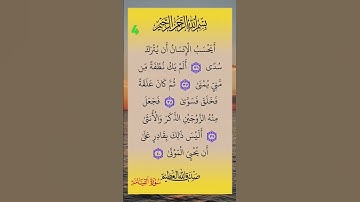 بسم الله الرحمن الرحيم
أَيَحْسَبُ الْإِنسَانُ أَن يُتْرَكَ
سُدًى ٣٦ أَلَمْ يَكُ نُطْفَةً مِّن
مَّنِيٍّ يُمْنَىٰ ٣٧ ثُمَّ كَانَ عَلَقَةً
فَخَلَقَ فَسَوَّىٰ ٣٨ فَجَعَلَ
مِنْهُ الزَّوْجَيْنِ الذَّكَرَ وَالْأُنثَىٰ
٣٩ أَلَيْسَ ذَٰلِكَ بِقَادِرٍ عَلَىٰ
أَن يُحْيِيَ الْمَوْتَىٰ ٤٠
صدق الله العظيم
سورة القيامة